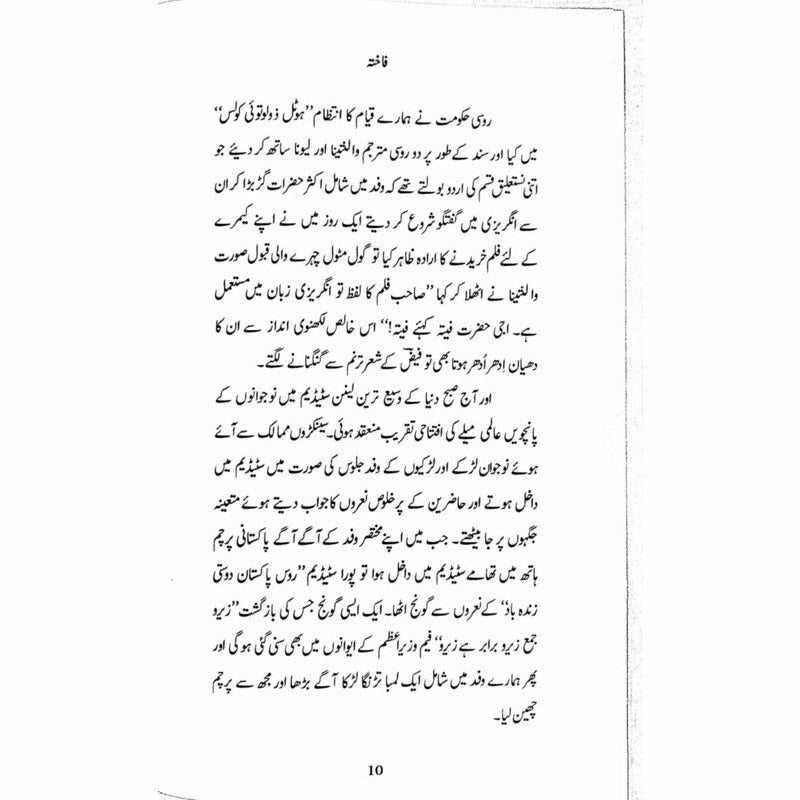 فاختہ
روسی حکومت نے ہمارے قیام کا انتظام ’’ہوٹل ذولوتوئی کولس‘‘
میں کیا اور سند کے طور پر دو روسی مترجم والنتینا اور لیونا ساتھ کر دیئے جو
اتنی نستعلیق قسم کی اردو بولتے تھے کہ وفد میں شامل اکثر حضرات گڑبڑا کر ان
سے انگریزی میں گفتگو شروع کر دیتے ایک روز میں نے اپنے کیمرے
کے لئے فلم خریدنے کا ارادہ ظاہر کیا تو گول مٹول چہرے والی قبول صورت
والنتینا نے اٹھلا کر کہا ’’صاحب فلم کا لفظ تو انگریزی زبان میں مستعمل
ہے۔ اجی حضرت فیتہ کہئے فیتہ!‘‘ اس خالص لکھنوی انداز سے ان کا
دھیان اِدھر اُدھر ہوتا بھی تو فیضؔ کے شعر ترنم سے گنگنانے لگتے۔
اور آج صبح دنیا کے وسیع ترین لینن سٹیڈیم میں نوجوانوں کے
پانچویں عالمی میلے کی افتتاحی تقریب منعقد ہوئی۔ سینکڑوں ممالک سے آئے
ہوئے نوجوان لڑکے اور لڑکیوں کے وفد جلوس کی صورت میں سٹیڈیم میں
داخل ہوتے اور حاضرین کے پرخلوص نعروں کا جواب دیتے ہوئے متعینہ
جگہوں پر جا بیٹھتے۔ جب میں اپنے مختصر وفد کے آگے آگے پاکستانی پرچم
ہاتھ میں تھامے سٹیڈیم میں داخل ہوا تو پورا سٹیڈیم ’’روس پاکستان دوستی
زندہ باد‘‘ کے نعروں سے گونج اٹھا۔ ایک ایسی گونج جس کی بازگشت ’’زیرو
جمع زیرو برابر ہے زیرو‘‘ فیم وزیراعظم کے ایوانوں میں بھی سنی گئی ہوگی اور
پھر ہمارے وفد میں شامل ایک لمبا تڑنگا لڑکا آگے بڑھا اور مجھ سے پرچم
چھین لیا۔
10